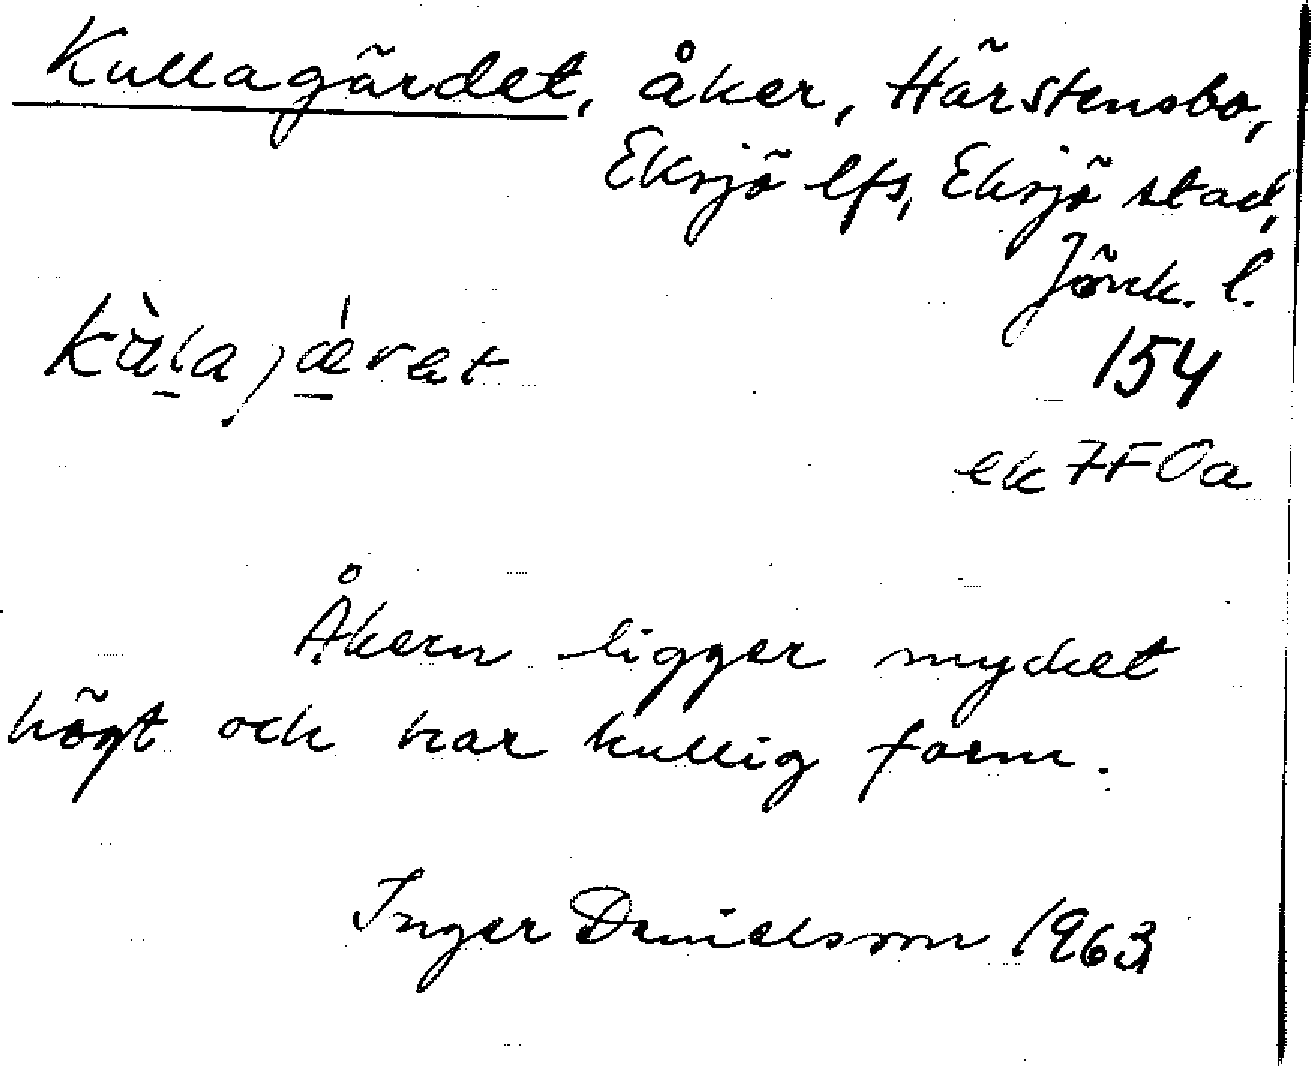 Kullagärdet, åker, Härstensbo,
Eksjö lfs, Eksjö stad,
Jönk. l.
154
ek 7F0a
Åkern ligger mycket
högt och har kullig form.
Inger Danielsson 1963